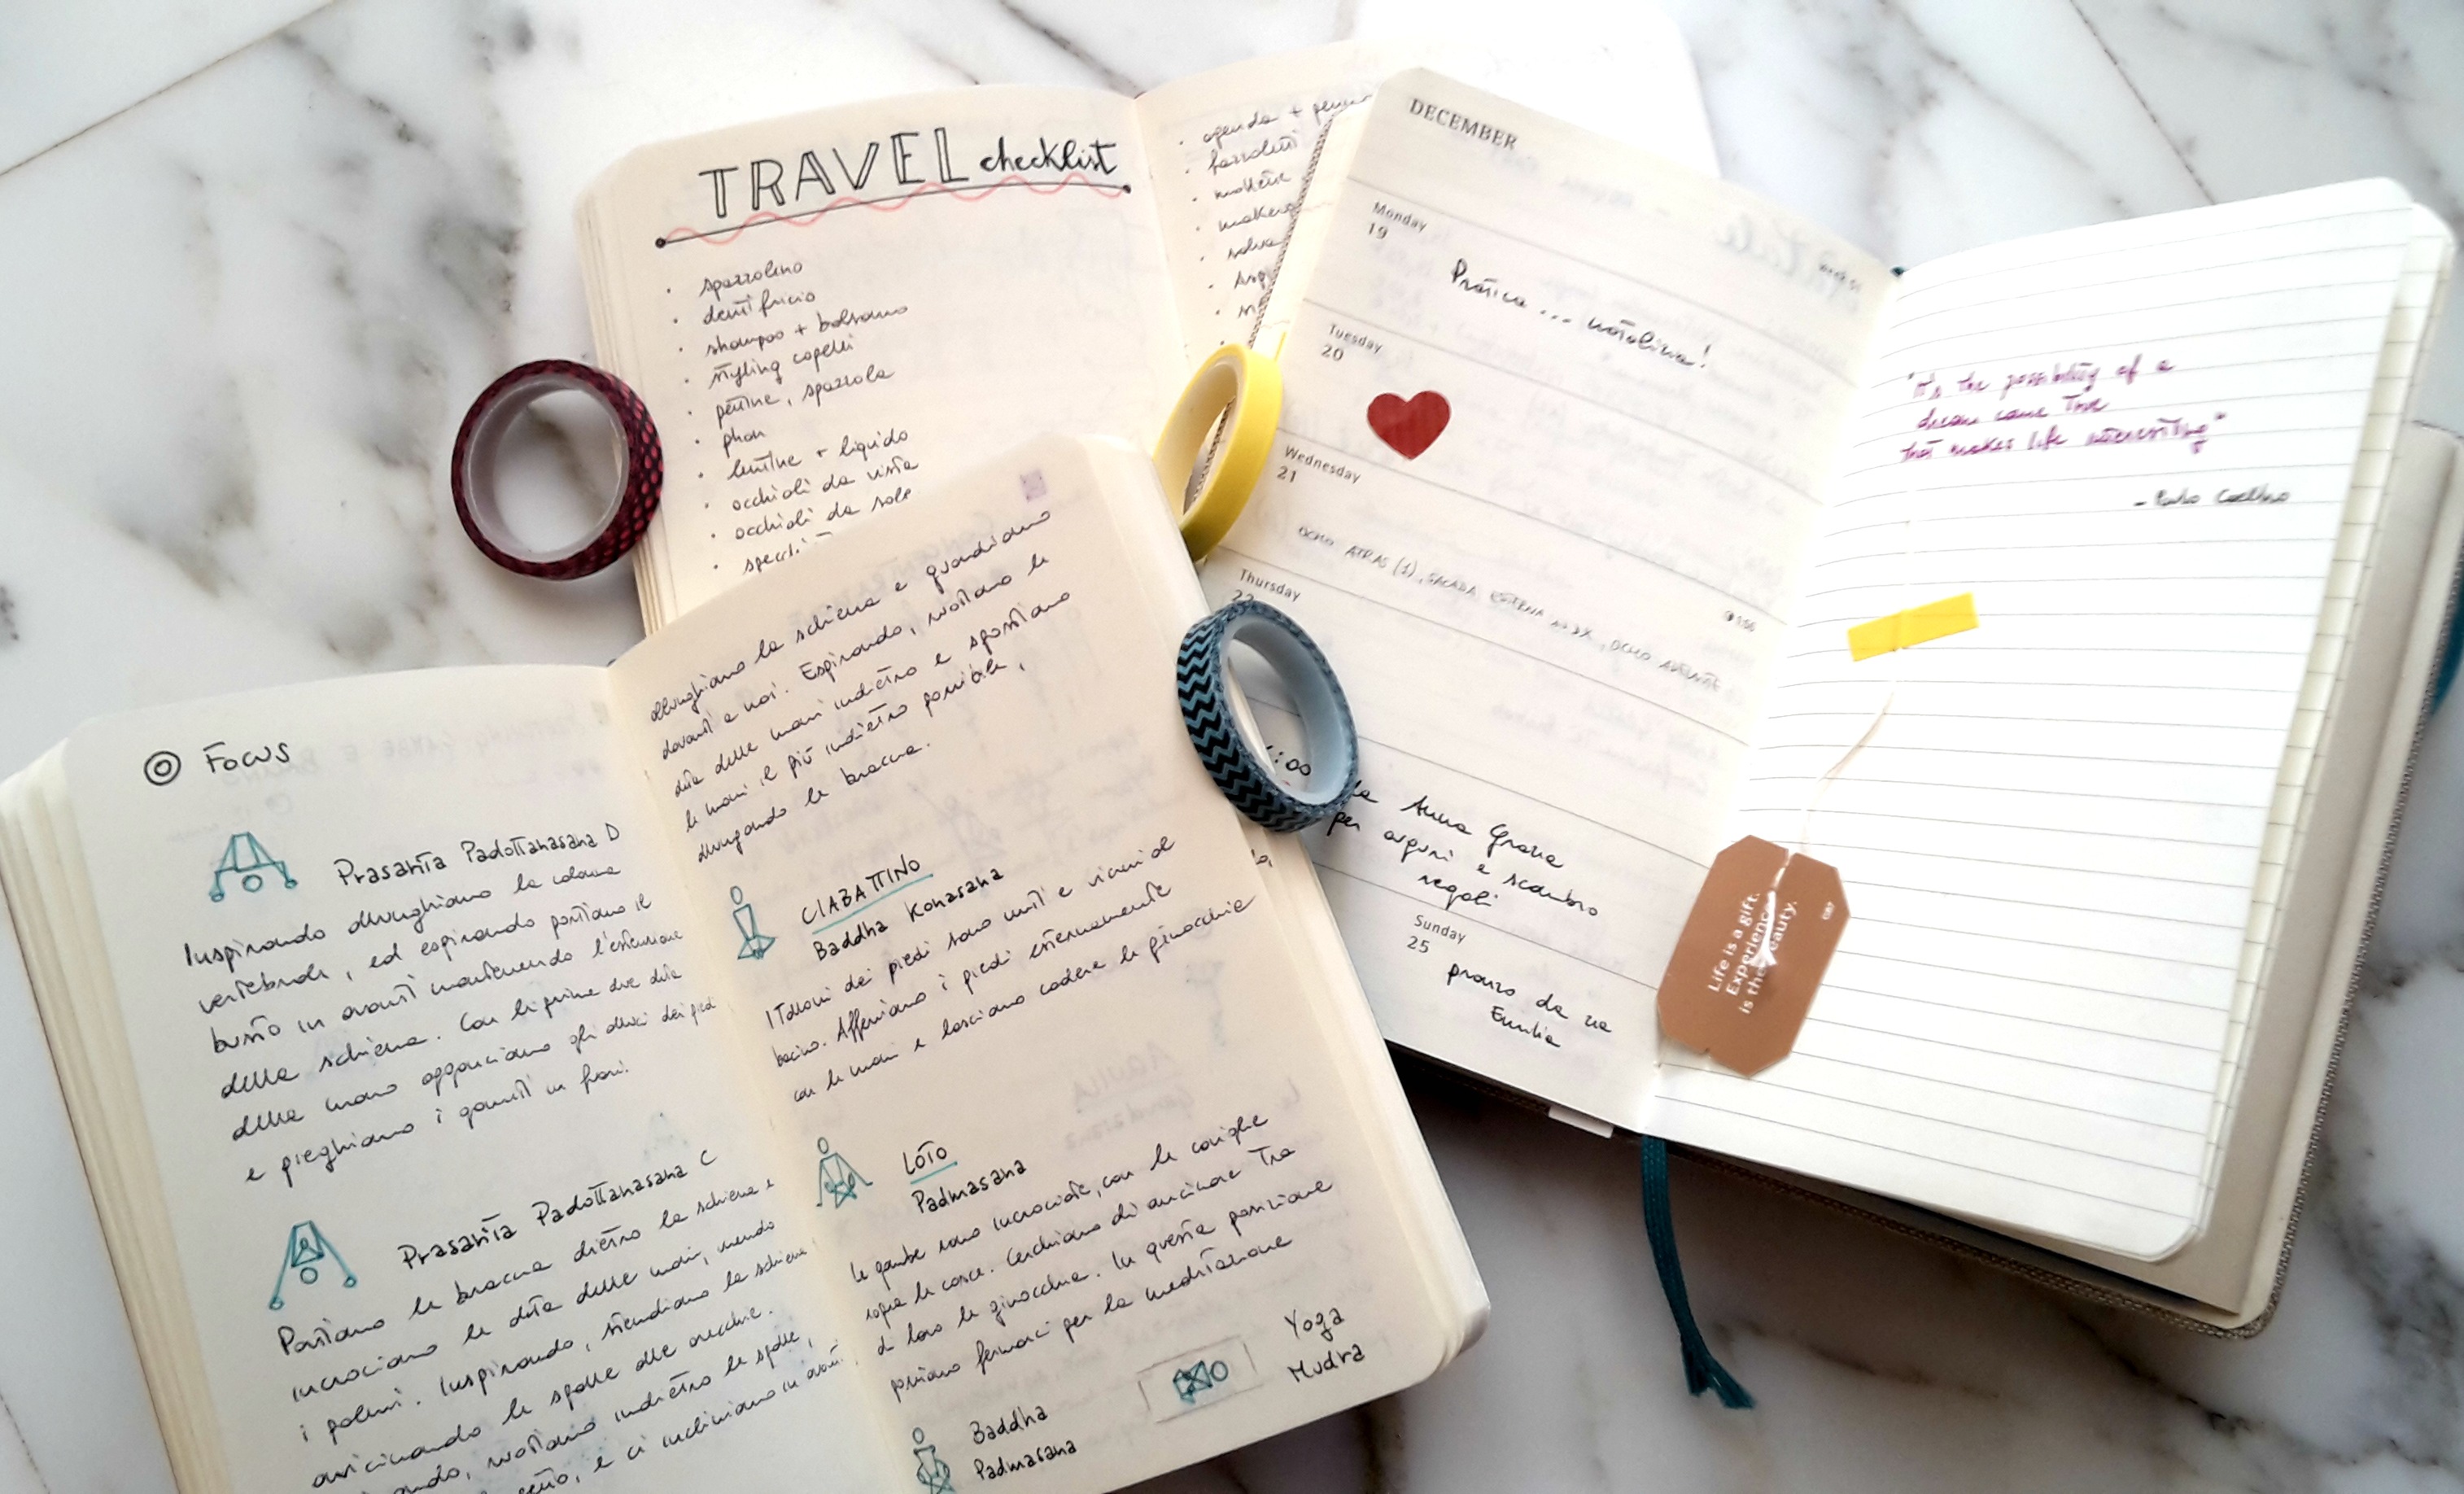 TRAVEL checklist
• spazzolino
• dentifricio
• shampoo + balsamo
• styling capelli
• pettine, spazzola
• phon
• lentine + liquido
• occhiali da vista
• occhiali da sole
• agenda +
• fazzoletti
DECEMBER
Monday
19
Pratica ... natalizia!
Tuesday
20
Wednesday
21
OCHO ATRAS (1), SACADA
Thursday
22
:00
Anna Grazia
per auguri e scambio
regali
Sunday
25
pranzo da zia
Emilia
"It's the possibility of a
dream come true
that makes life interesting"
- Paulo Coelho
Life is a gift.
Experience
is the beauty.
Focus
Prasarita Padottanasana D
Inspirando allunghiamo la colonna
vertebrale, ed espirando portiamo il
busto in avanti mantenendo l'estensione
della schiena. Con le prime due dita
della mano agganciamo gli alluci dei piedi
e pieghiamo i gomiti in fuori.
Prasarita Padottanasana C
Portiamo le braccia dietro la schiena e
incrociamo le dita delle mani, unendo
i palmi. Inspirando, stendiamo la schiena
avvicinando le spalle alle orecchie.
ruotiamo indietro le spalle,
e ci incliniamo in avanti
allunghiamo la schiena e guardiamo
davanti a noi. Espirando, ruotiamo le
dita delle mani indietro e spostiamo
le mani il più indietro possibile,
allungando le braccia.
CIABATTINO
Baddha Konasana
I talloni dei piedi sono uniti e vicini al
bacino. Afferriamo i piedi esternamente
con le mani e lasciamo cadere le ginocchia
LOTO
Padmasana
Le gambe sono incrociate, con le caviglie
sopra le cosce. Cerchiamo di avvicinare tra
di loro le ginocchia. In questa posizione
possiamo fermarci per la meditazione
Yoga
Mudra
Baddha
Padmasana